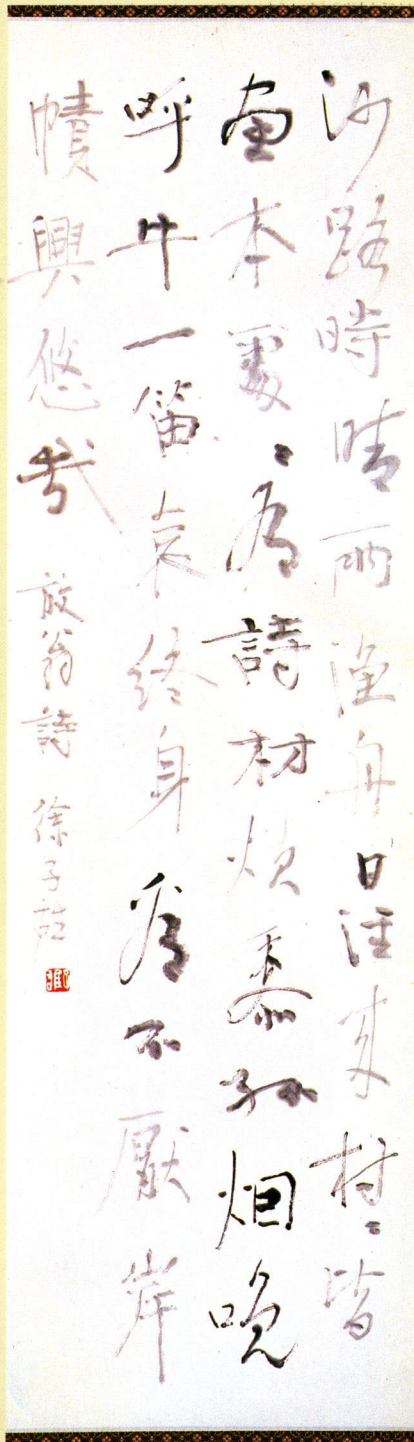 沙路時晴雨漁舟日往来村〻皆
画本處〻有詩材炊黍孤烟晚
呼牛一笛哀終身看不厭岸
幘興悠哉 放翁詩 徐子